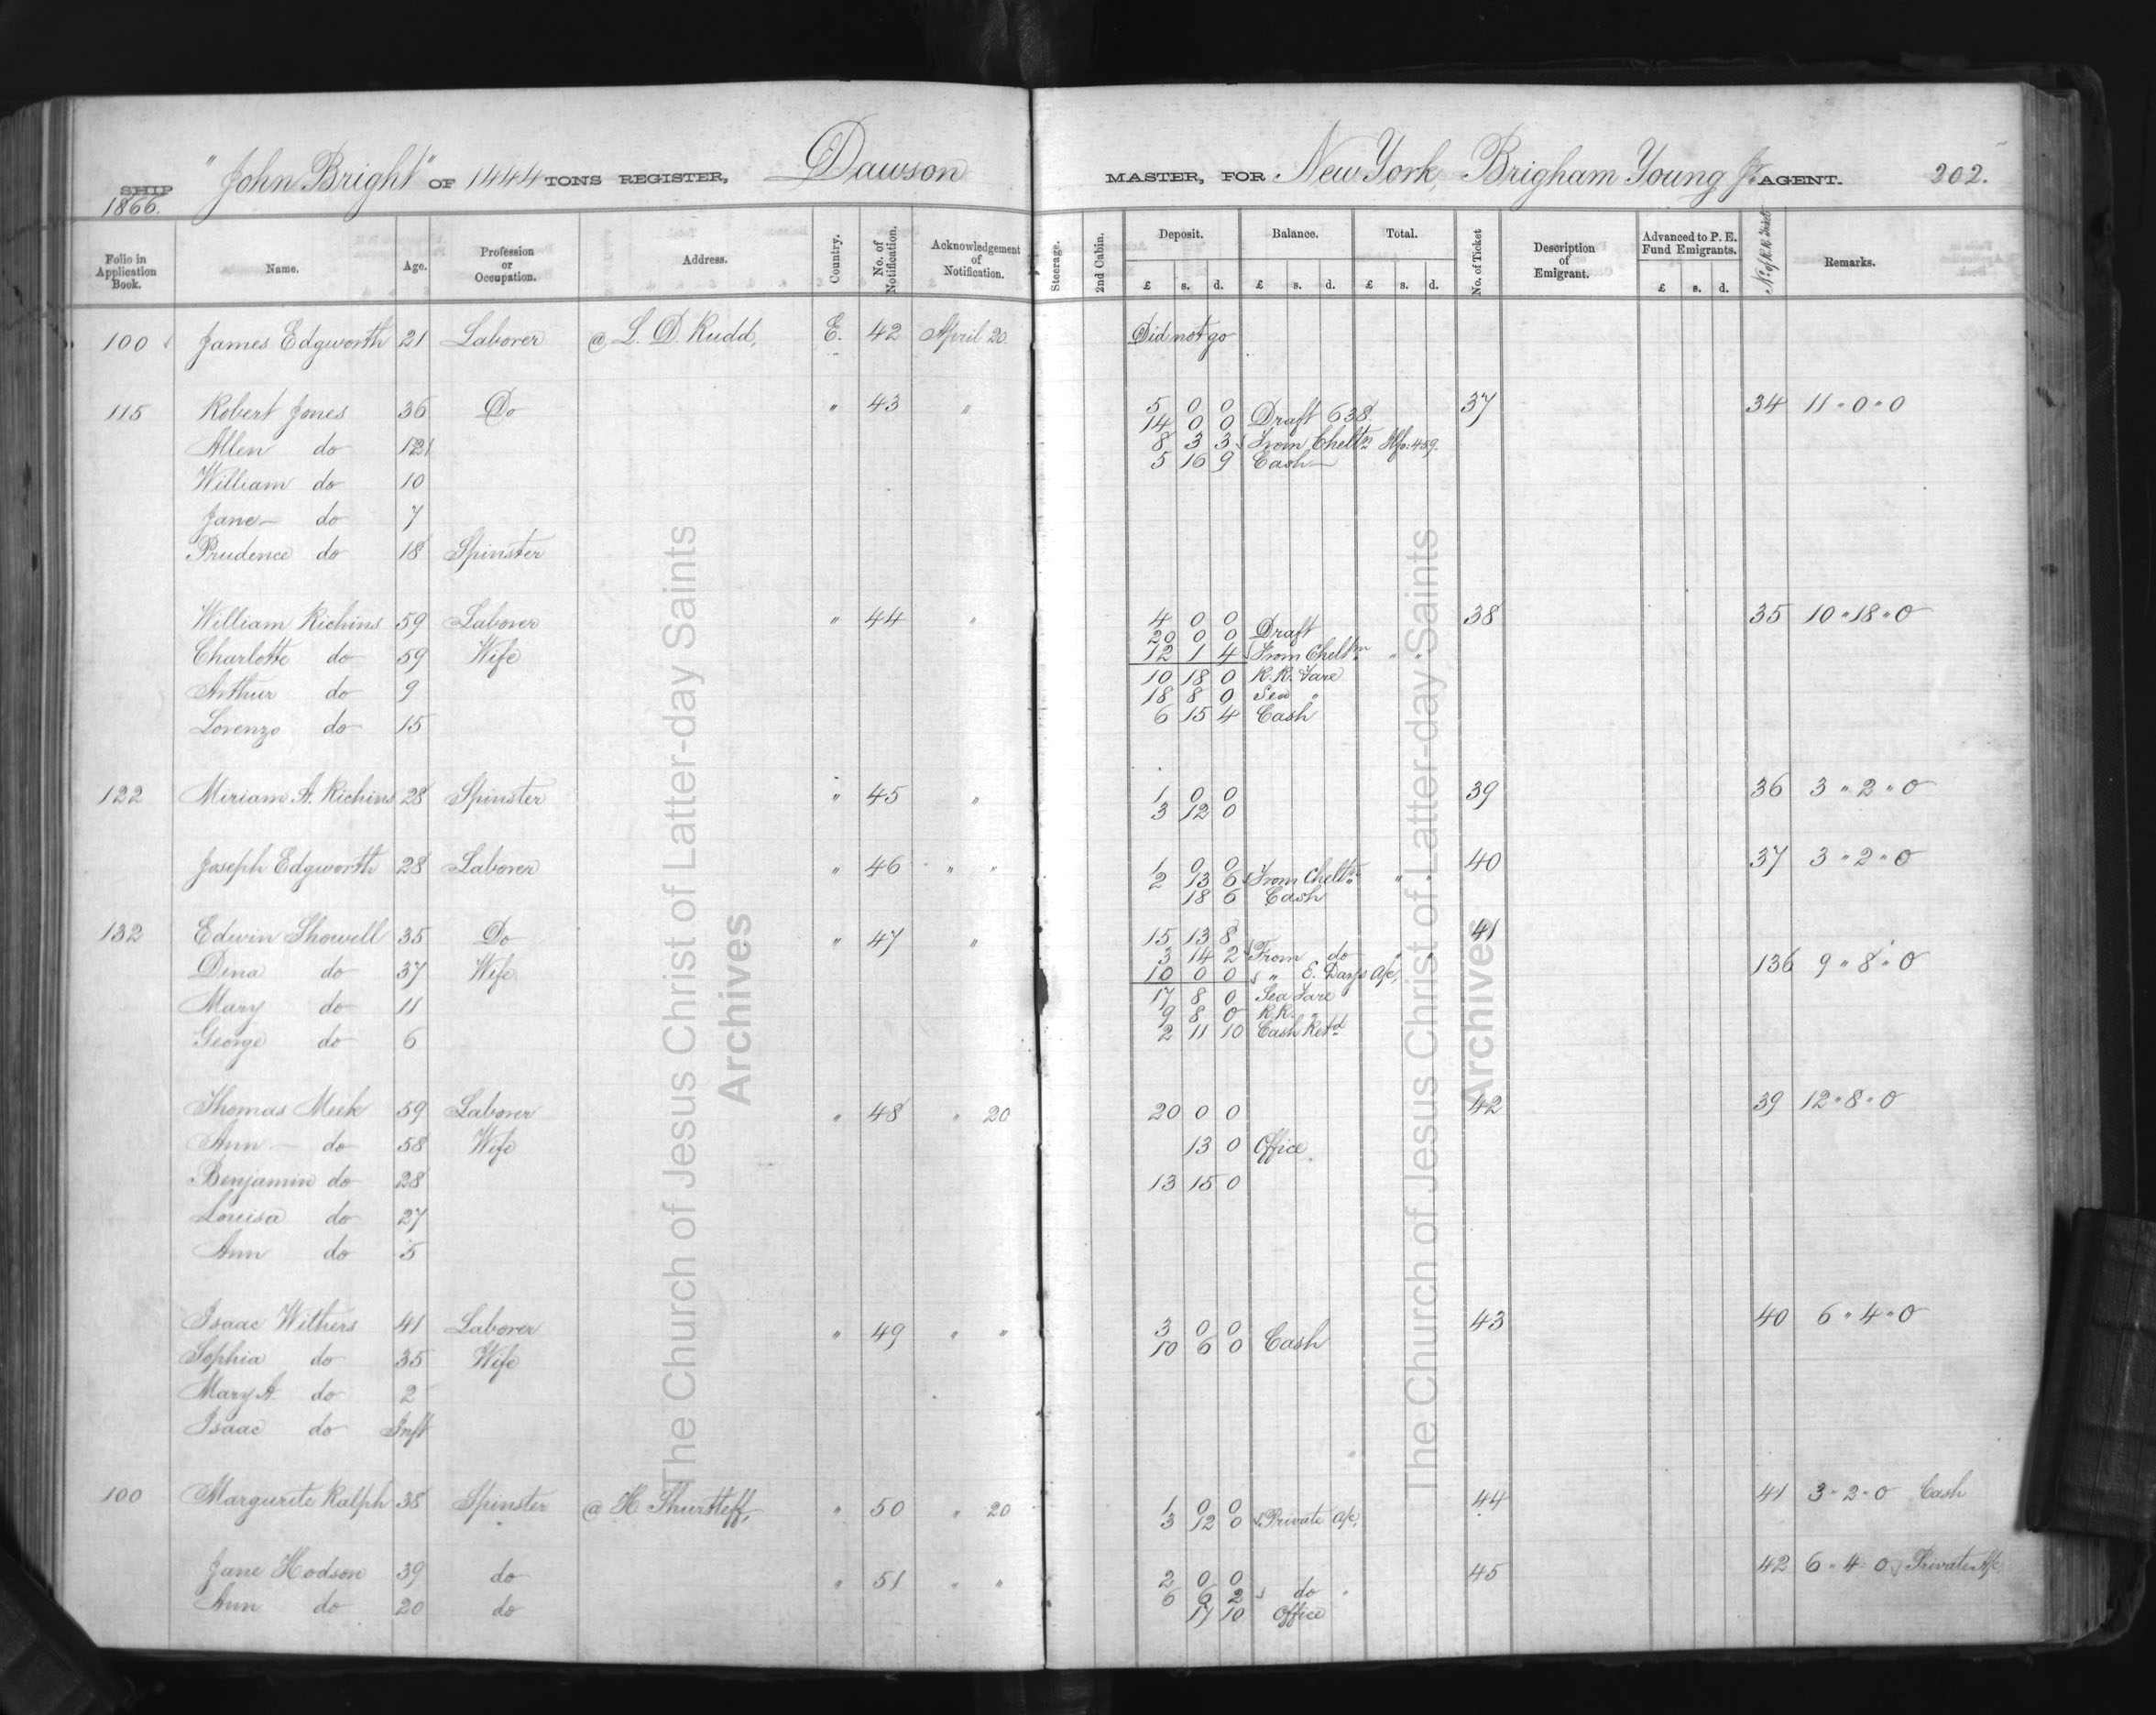 SHIP "John Bright" OF 1444 TONS REGISTER, Dawson MASTER, FOR New York, Brigham Young Jr. AGENT. 202.
1866.
Folio in Application Book. Name. Age. Profession or Occupation. Address. Country. No. of Notification. Acknowledgement of Notification. Steerage. 2nd Cabin. Deposit. Balance. Total. No. of Ticket Description of Emigrant. Advanced to P. E. Fund Emigrants. No. of R.R. Ticket Remarks.
£ s. d. £ s. d. £ s. d. £ s. d.
100 James Edgworth 21 Laborer @ L. D. Rudd, E. 42 April 20. Did not go
115 Robert Jones 36 Do " 43 " 5 0 0 37 34 11 " 0 " 0
14 0 0 Draft 638
Allen do 8 3 3 From Chelt'm
William do 10 5 16 9 Cash
Jane do 7
Prudence do 18 Spinster
William Richins 59 Laborer " 44 " 4 0 0 38 35 10 " 18 " 0
20 0 0 Draft
Charlotte do 59 Wife 12 1 4 From Chelt'm " "
Arthur do 9 10 18 0 R.R. Fare
18 8 0 Sea "
Lorenzo do 15 6 15 4 Cash
122 Miriam A. Richins 28 Spinster " 45 " 1 0 0 39 36 3 " 2 " 0
3 12 0
Joseph Edgworth 28 Laborer " 46 " " 1 0 0 40 37 3 " 2 " 0
2 13 6 From Chelt'm " "
18 6 Cash
132 Edwin Showell 35 Do " 47 " 15 13 8 41
3 14 2 From do " "
Dina do 37 Wife 10 0 0 " E. Days a/c, 136 9 " 8 " 0
Mary do 11 17 8 0 Sea Fare
9 8 0 R.R. "
George do 6 2 11 10 Cash Retd
Thomas Meek 59 Laborer " 48 " 20 20 0 0 42 39 12 " 8 " 0
Ann do 58 Wife 13 0 Office.
Benjamin do 28 13 15 0
Louisa do 27
Ann do 5
Isaac Withers 41 Laborer " 49 " " 3 0 0 43 40 6 " 4 " 0
Sophia do 35 Wife 10 6 0 Cash
Mary A. do 2
Isaac do Inft
100 Margurite Ralph 38 Spinster @ H. Shurtleff, " 50 " 20 1 0 0 44 41 3 " 2 " 0 Cash
3 12 0 Private a/c,
Jane Hodson 39 do " 51 " " 2 0 0 45 42 6 " 4 0 Private A/c
6 6 2 do "
Ann do 20 do 17 10 Office
The Church of Jesus Christ of Latter-day Saints
Archives
The Church of Jesus Christ of Latter-day Saints
Archives